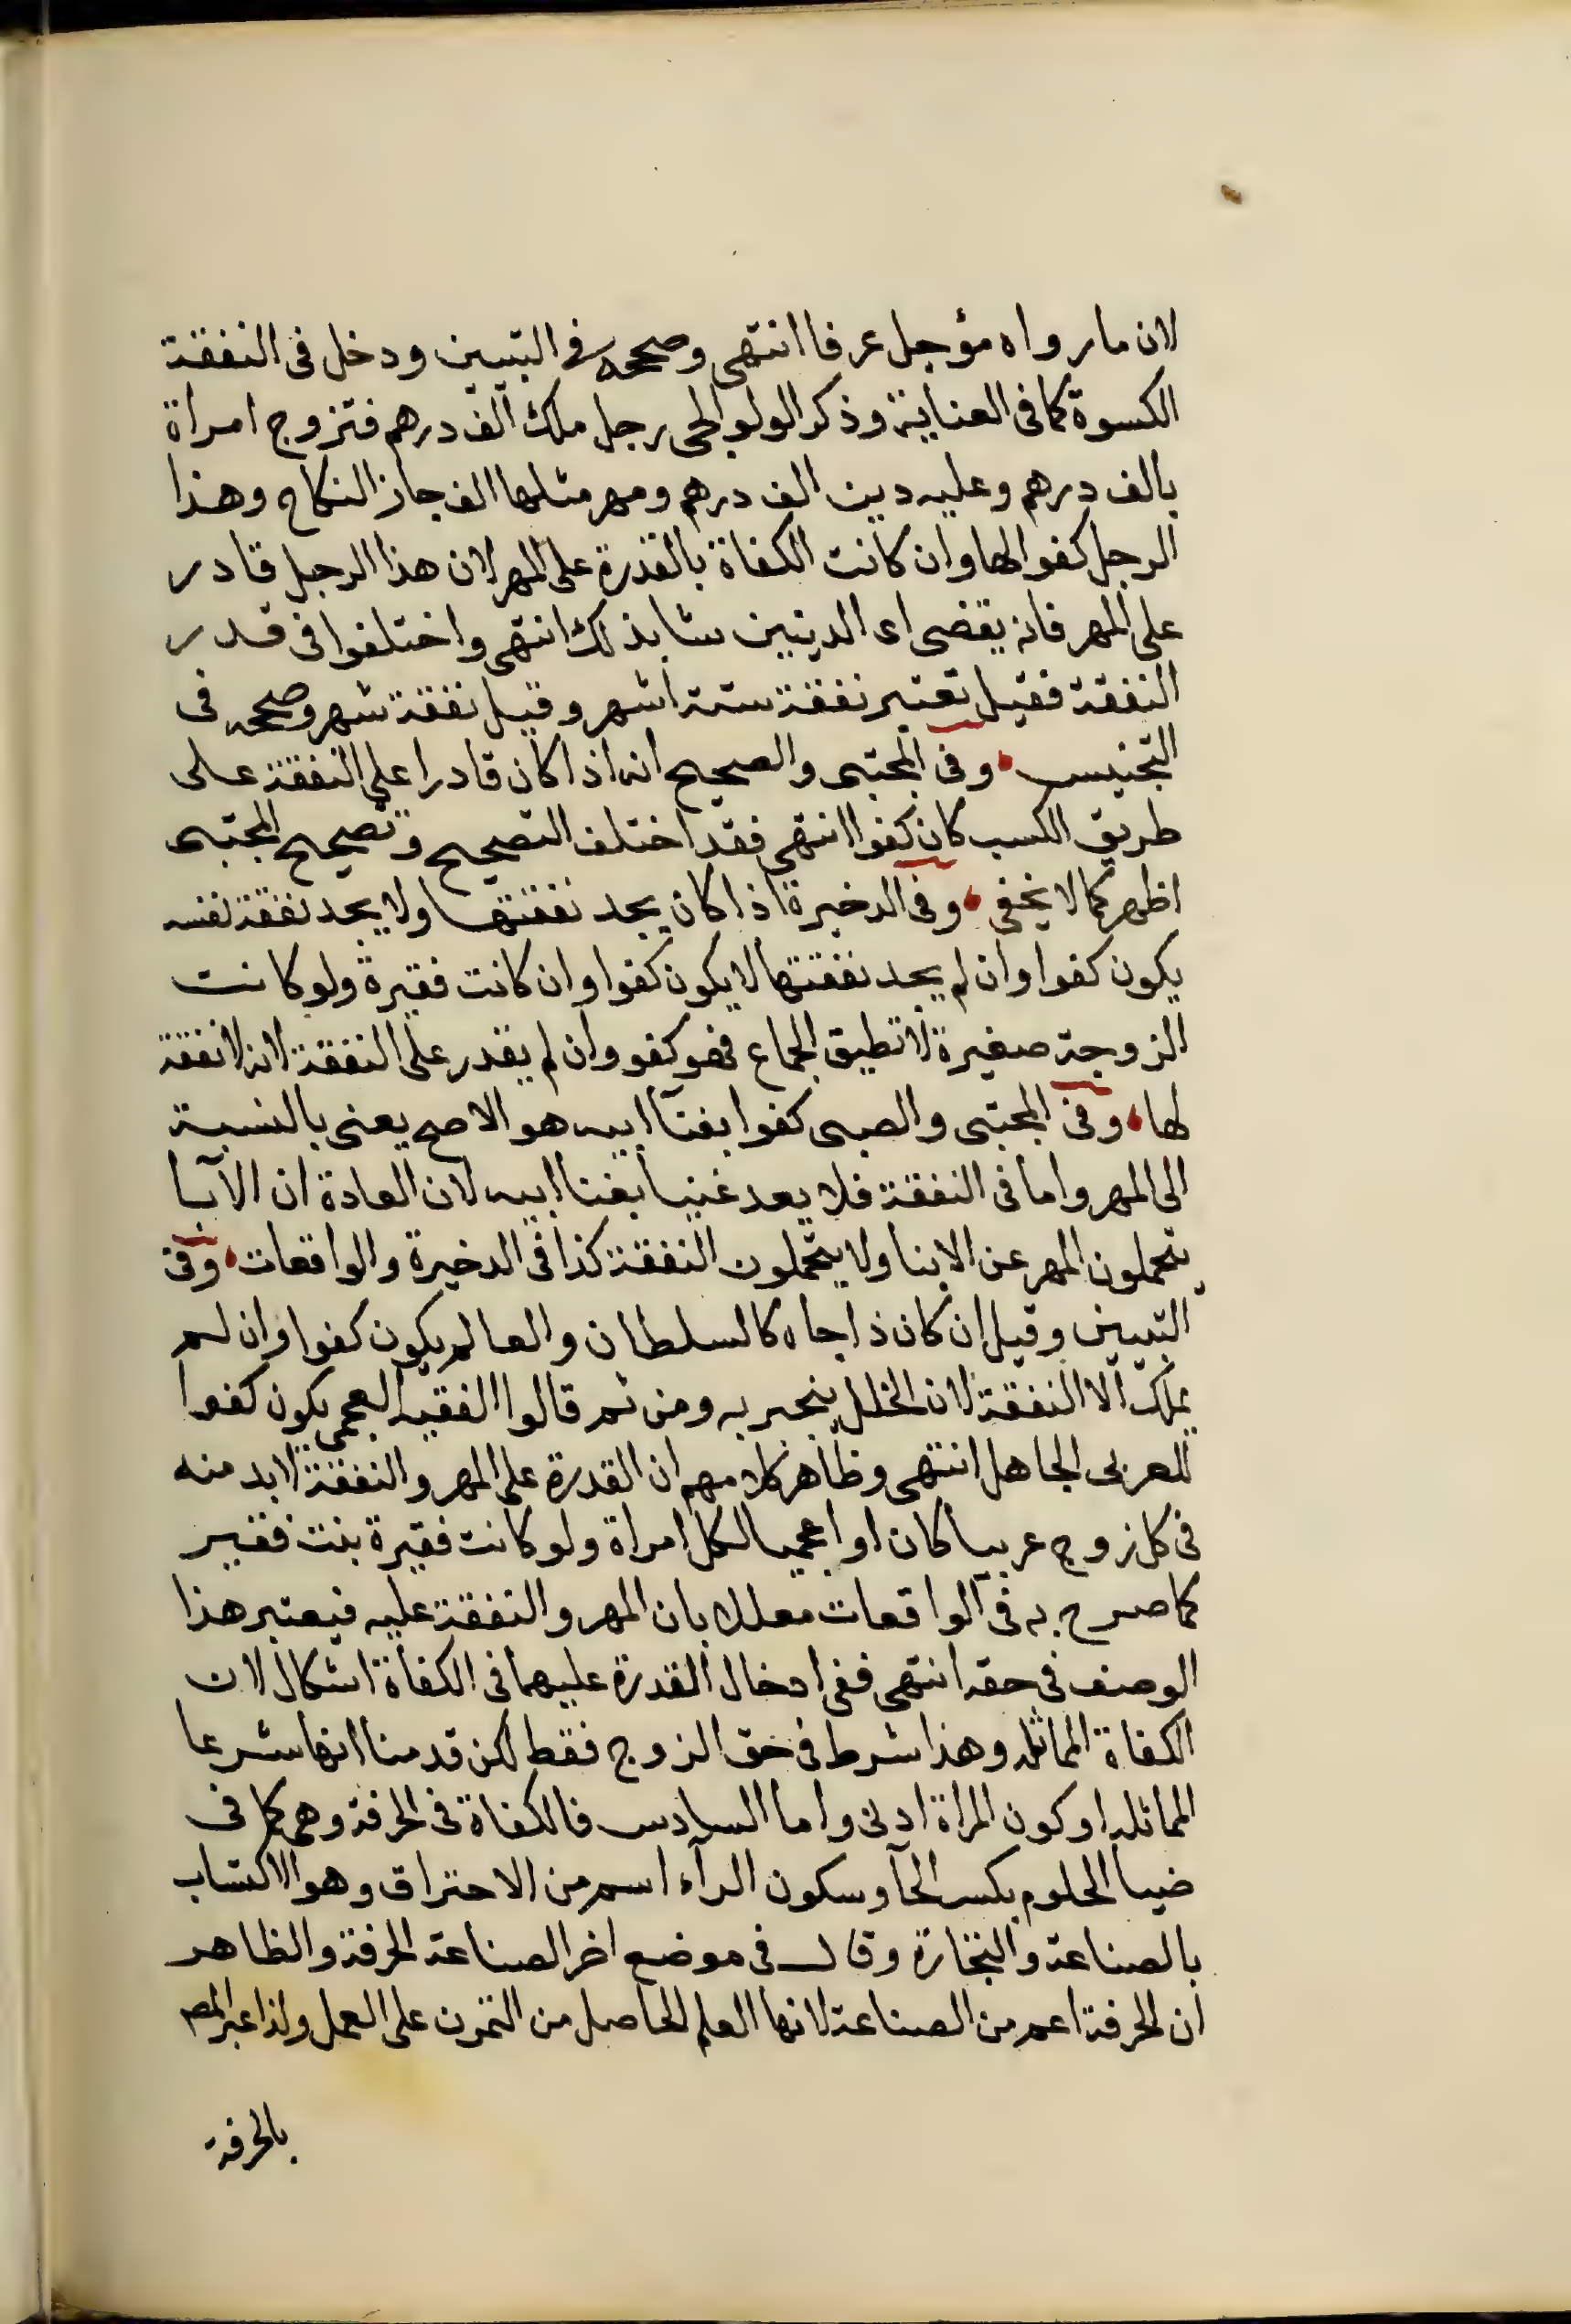 لان ما رواه مؤجل عرفا انتهى وصححه في التبيين ودخل فى النفقة
الكسوة كما فى العناية وذكر الولوالجى رجل ملك الف درهم فتزوج امراة
بالف درهم وعليه دين الف درهم ومهر مثلها الف جاز النكاح وهذا
الرجل كفوا لها وان كانت الكفاة بالقدرة على المهر لان هذا الرجل قادر
على المهر فانه يقضى اى الدينين شا بذلك انتهى واختلفوا فى قدر
النفقة فقيل تعتبر نفقة ستة اشهر وقيل نفقة شهر وصححه فى
التجنيس وفى المجتبى والصحيح انه اذا كان قادرا على النفقة على
طريق الكسب كان كفوا انتهى فقد اختلف التصحيح وتصحيح المجتبى
اظهر كما لا يخفى وفى الدخيرة اذا كان يجد نفقتها ولا يجد نفقة نفسه
يكون كفوا وان لم يجد نفقتها لا يكون كفوا وان كانت فقيرة ولو كانت
الزوجة صغيرة لا تطيق الجماع فهو كفو وان لم يقدر على النفقة لانه لا نفقة
لها وفى المجتبى والصبى كفوا بغنآ ابيه هو الاصح يعنى بالنسبة
الى المهر واما فى النفقة فلا يعد غنيا بغنا ابيه لان العادة ان الآبا
يتحملون المهر عن الابنا ولا يتحملون النفقة كذا فى الدخيرة والواقعات وفى
التبيين وقيل ان كان ذا جاه كالسلطان والعالم يكون كفوا وان لم
يملك الا النفقة لان الخلل ينجبر به ومن ثم قالوا الفقيه العجمى يكون كفوا
للعربى الجاهل انتهى وظاهر كلامهم ان القدرة على المهر والنفقة لا بد منه
فى كل زوج عربيا كان او اعجميا لكل امراة ولو كانت فقيرة بنت فقير
كما صرح به فى الواقعات معللا بان المهر والنفقة عليه فيعتبر هذا
الوصف فى حقه انتهى ففى ادخال القدرة عليهما فى الكفاة اشكال لان
الكفاة المماثله وهذا شرط فى حق الزوج فقط لكن قدمنا انها شرعا
المماثله او كون المراة ادنى واما السادس فالكفاة فى الحرفة وهى كما فى
ضيا الحلوم بكسر الحآ وسكون الرآء اسم من الاحتراف وهو الاكتساب
بالصناعة والتجارة وقال فى موضع اخر الصناعة الحرفة والظاهر
ان الحرفة اعم من الصناعة لانها العلم الحاصل من التمرن على العمل ولذا عبر المصـ
بالحرفة